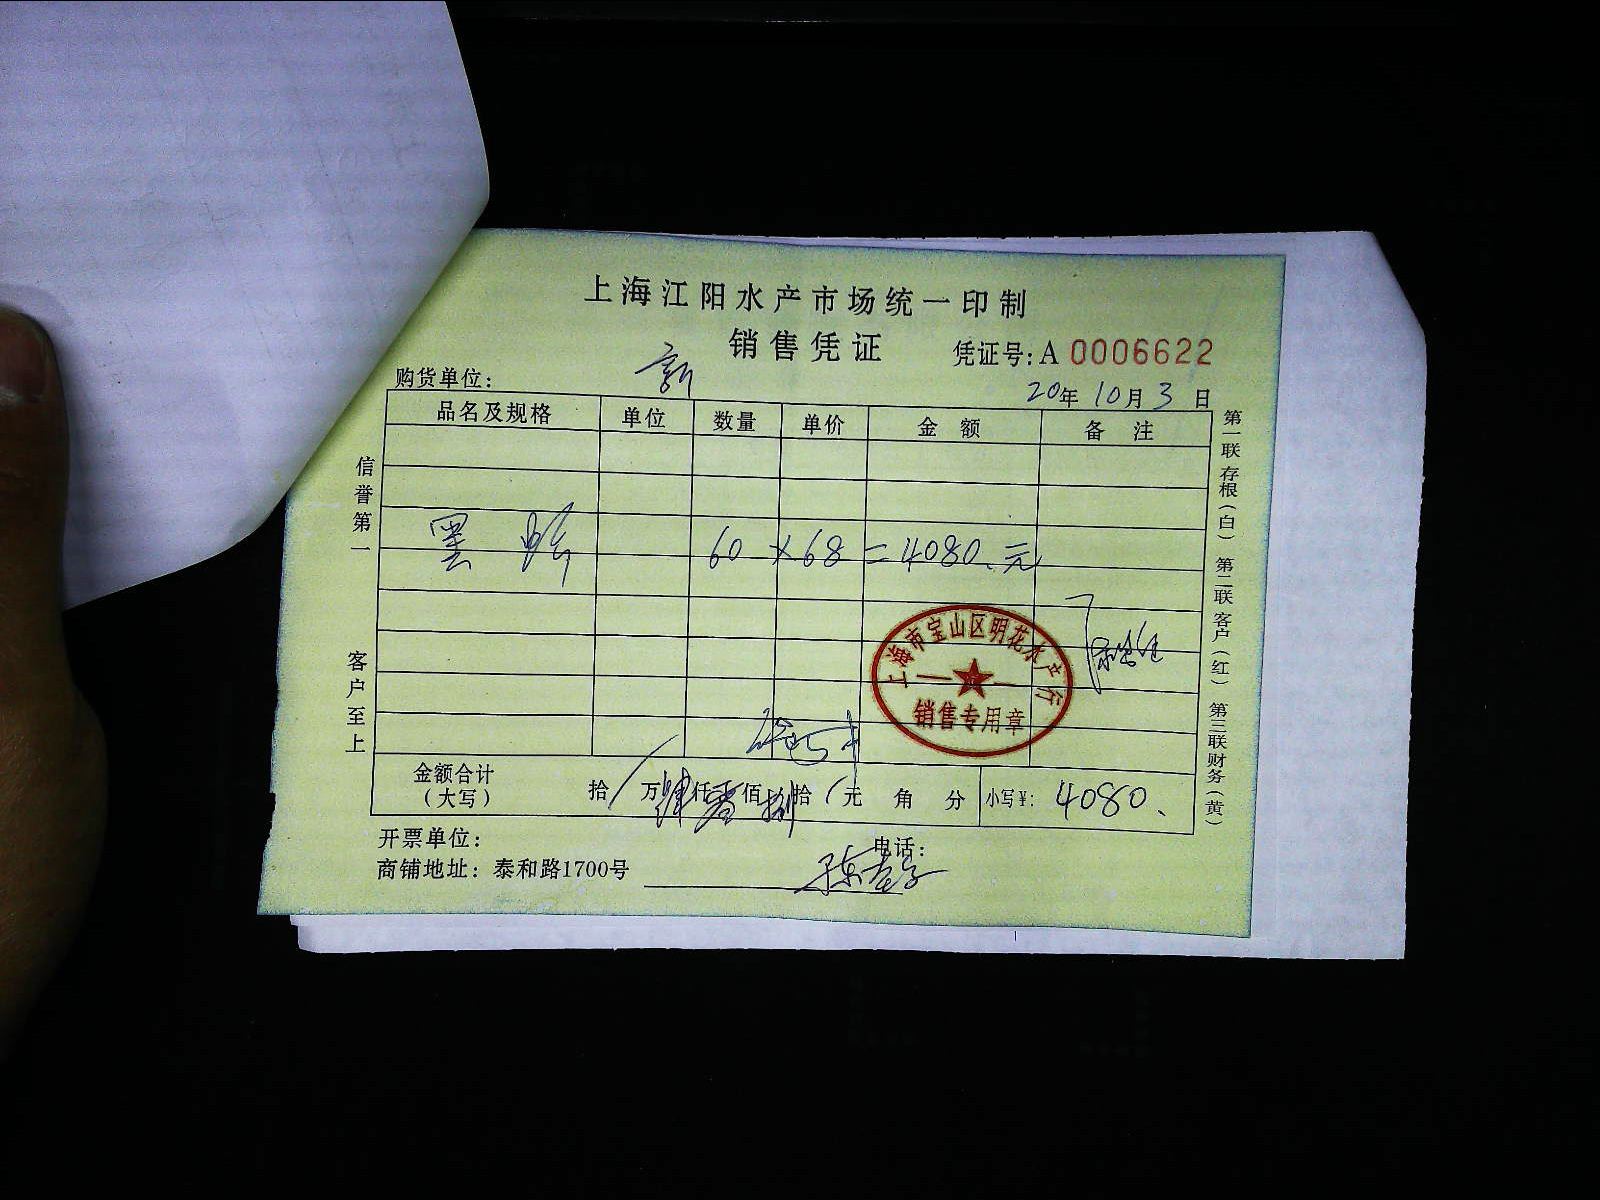 上海江阳水产市场统一印制
销售凭证
凭证号:A 0006622
购货单位:
20年10月3日
品名及规格 单位 数量 单价 金额 备注
黑 60 × 68 = 4080.元
上海市宝山区明花水产行
销售专用章
金额合计(大写) 拾 / 万 肆 仟 零 佰 捌 拾 / 元 角 分 小写¥: 4080.
开票单位:
电话:
商铺地址: 泰和路1700号
信誉第一
客户至上
第一联存根(白) 第二联客户(红) 第三联财务(黄)